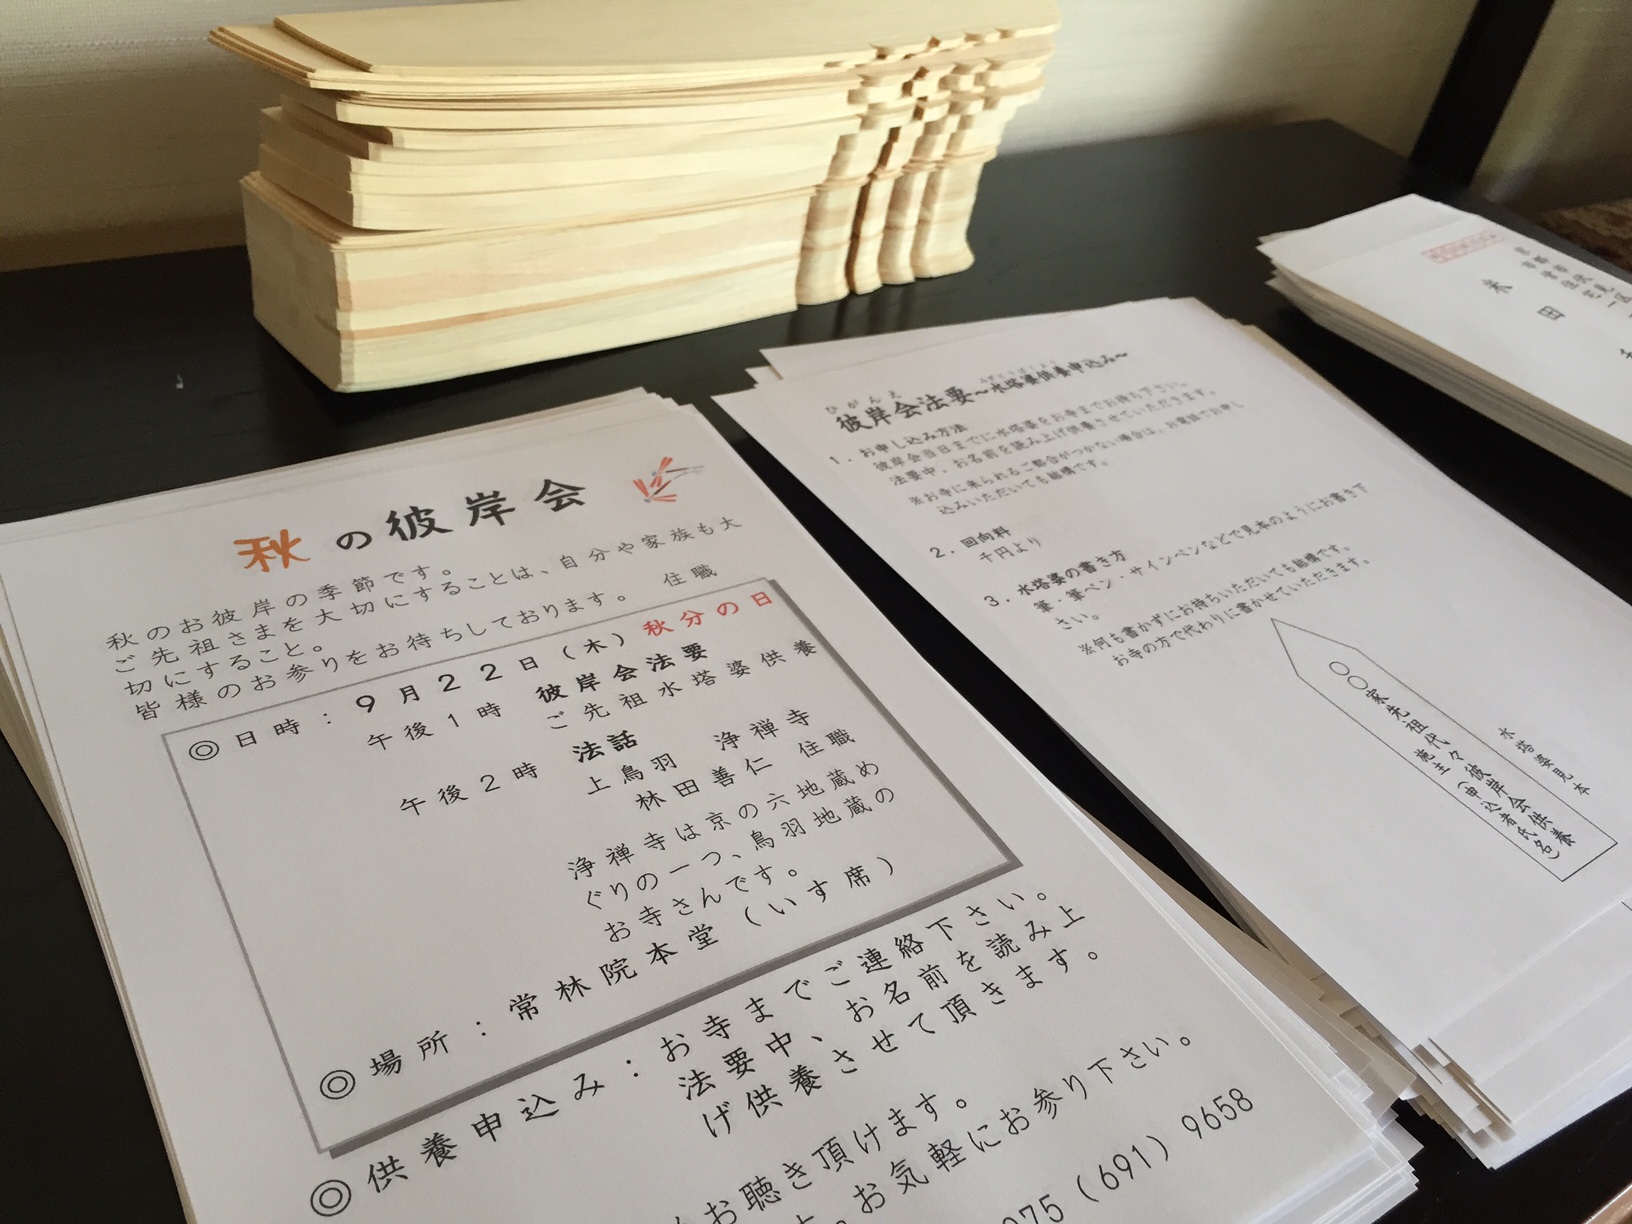 秋の彼岸会
秋のお彼岸の季節です。
ご先祖さまを大切にすることは、自分や家族も大
切にすること。
皆様のお参りをお待ちしております。 住職
◎日時：９月２２日（木）秋分の日
午後１時 彼岸会法要
ご先祖水塔婆供養
午後２時 法話
上鳥羽 浄禅寺
林田善仁 住職
浄禅寺は京の六地蔵め
ぐりの一つ、鳥羽地蔵の
お寺さんです。
◎場所：常林院本堂（いす席）
◎供養申込み：お寺までご連絡下さい。
法要中、お名前を読み上
げ供養させて頂きます。
お聴き頂けます。
お気軽にお参り下さい。
075（691）9658
ひがんえ
彼岸会法要～水塔婆供養申込み～
１．お申し込み方法
彼岸会当日までに水塔婆をお寺までお持ち下さい。
法要中、お名前を読み上げ供養させていただきます。
※お寺に来られるご都合がつかない場合は、お電話でお申し
込みいただいても結構です。
２．回向料
千円より
３．水塔婆の書き方
筆・筆ペン・サインペンなどで見本のようにお書き下
さい。
※何も書かずにお持ちいただいても結構です。
お寺の方で代わりに書かせていただきます。
水塔婆見本
〇〇家先祖代々彼岸会供養
施主（申込者氏名）
米田